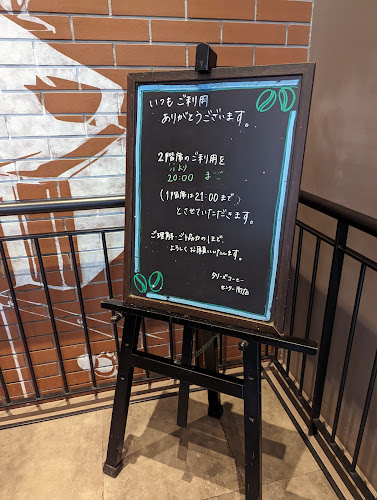 いつもご利用
ありがとうございます。
2階席のご利用を
より
20:00 まで
(1階席は21:00まで)
とさせていただきます。
ご理解・ご協力の上まで、
よろしくお願いいたします。
タリーズコーヒー
センター南店